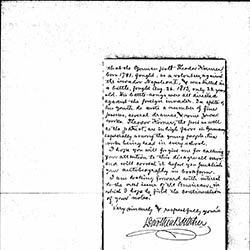 that the German poet Theodor Körner
born 1791, fought, as a volunteer against
the invader Napoleon I, & was killed in
a battle, fought Aug. 26. 1813, only 22 years
old. His battle-songs were all directed
against the foreign invader. In spite of
his youth he wrote a number of fine
poems, several dramas, & some
Theodor Körner, the poet as well
as the patriot, are in high favor in Germany
especially among the young people, his
works being read in every school.
I hope you will forgive me for calling
your attention to this
and will correct it before you publish
your autobiography in bookform.
I am looking forward with interest
to the next issue of the
which I hope to find the continuation
of your notes.
Very sincerely & respectfully yours
Dorothea Böttcher